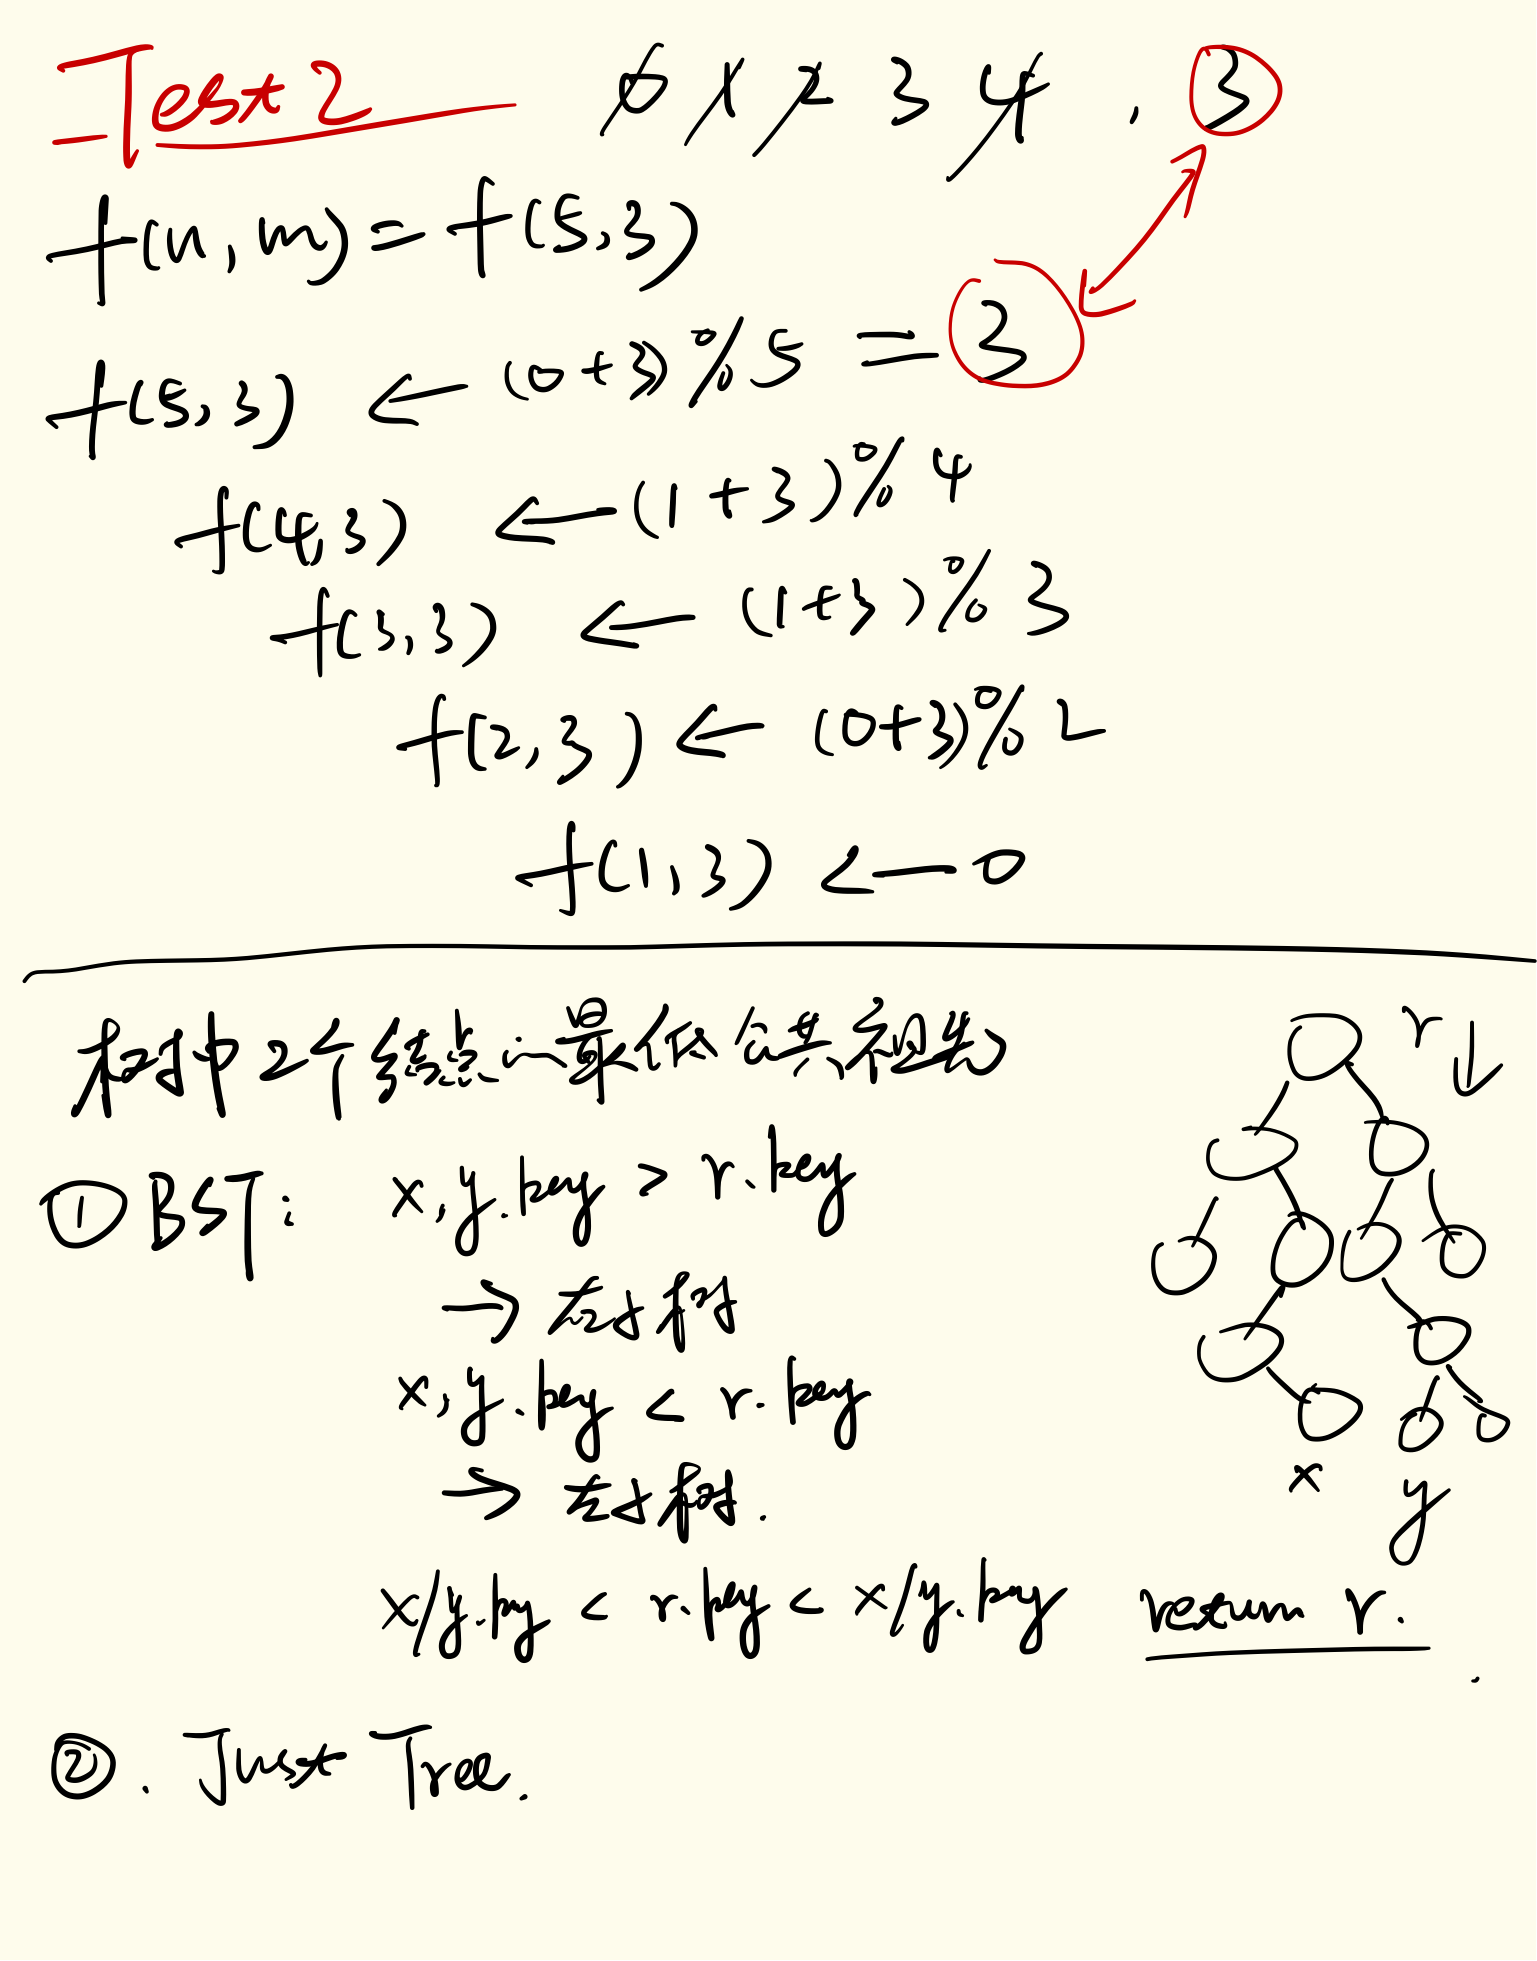 Test 2 0 1 2 3 4 . 3
f(n,m) = f(5,3)
f(5,3) ← (0+3)%5 = 3
f(4,3) ← (1+3)%4
f(3,3) ← (1+3)%3
f(2,3) ← (0+3)%2
f(1,3) ← 0
树中2个结点的最低公共祖先
r
① BST: x,y.key > r.key
→ 左子树
x,y.key < r.key
→ 左子树.
x y
x/y.key < r.key < x/y.key return r.
②. Just Tree.